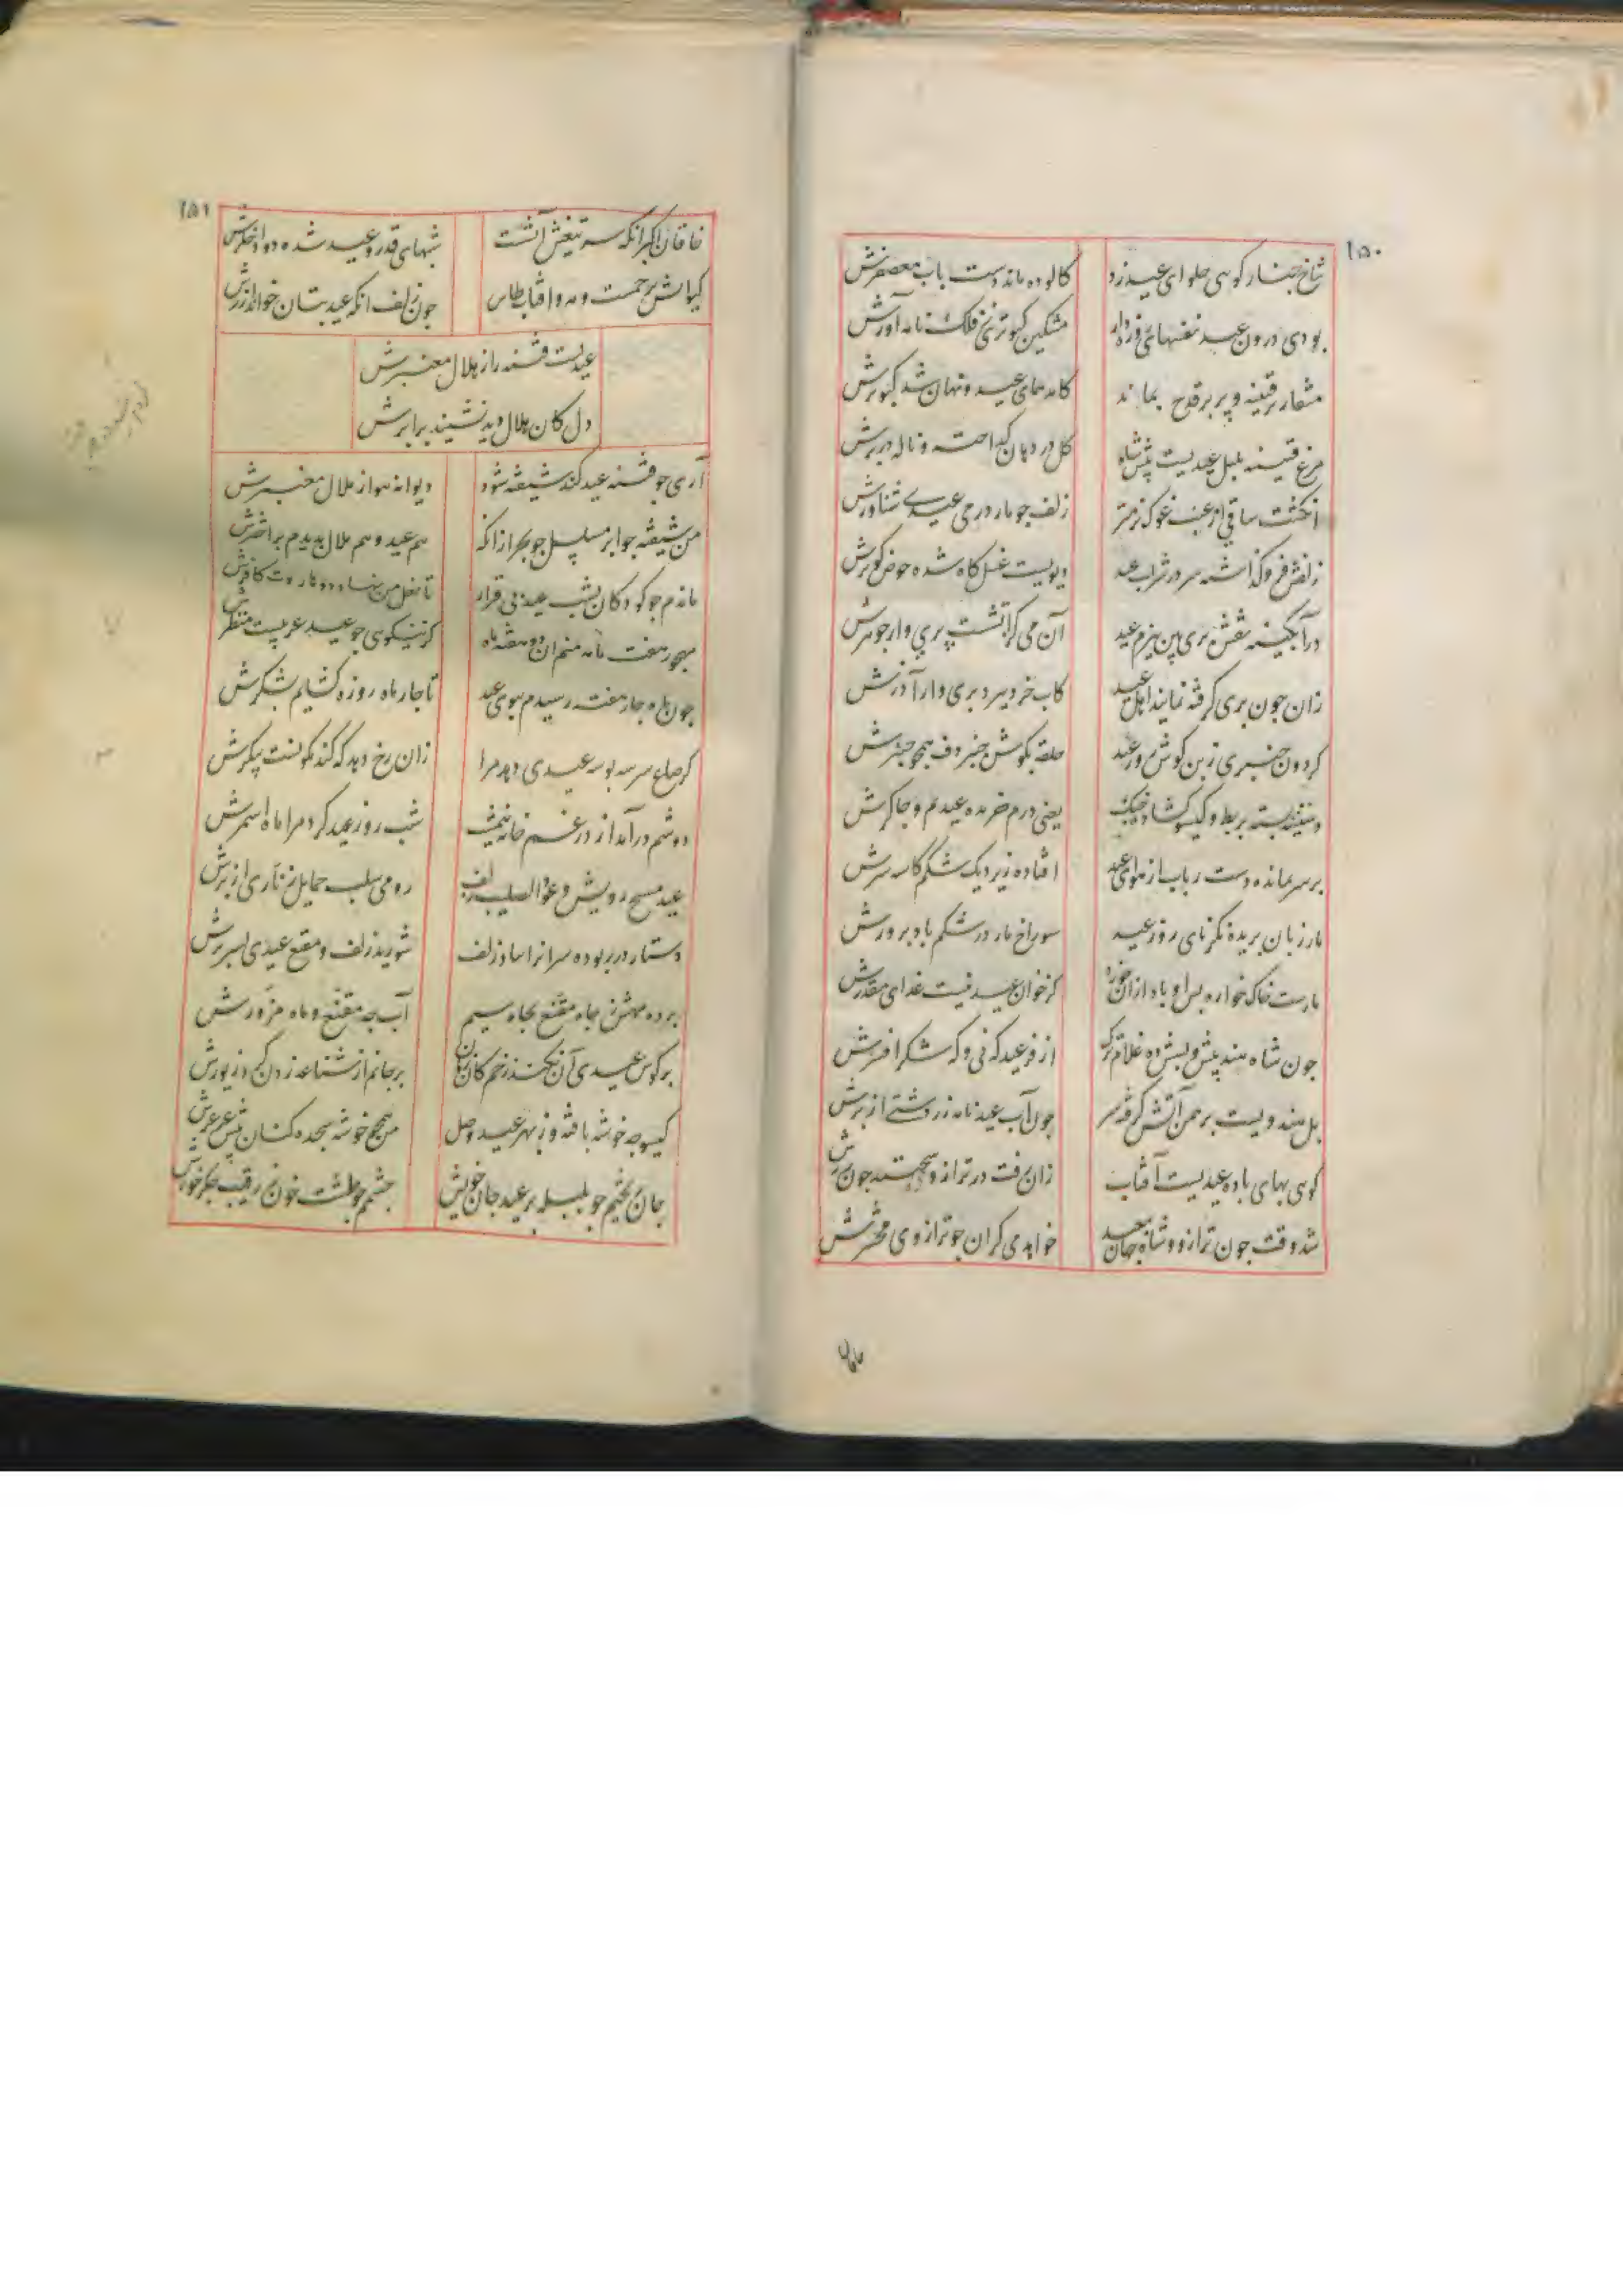 ۱۵۰
شاخ چنار کوسی حلوای عید زد کالوده ماند دست باب معصفرش
بودی درون عید نفسهای کبوترش نی فلک نامه آورش
منقار بر قنینه و پر بر قدح بماند کامد همای عید و نهان شد کبوترش
مرغ قنینه بلبل عیدیست پیش شاه کل در دهان کداخته و ناله در برش
انکشت ساقی از غبب غوک نرمتر زلف جو مار در می عیدی شناورش
زلفش فرو کذاشته سر در شراب عید دیویست غسل کاه شده حوض کوثرش
در آبکینه نقش پری بین ببزم عید آن می کز آتشست پری وار جوهرش
زان جون پری کرفته نمایند اهل عید کاب خرد ببرد پری وار آذرش
کردون جنبری زبن کوش روز عید حلقه بکوش جنبر دف همجو جنبرش
دستینه بسته بربط و کیسو کشاده جنک یعنی درم خریده عیدم و جاکرش
بر سر بمانده دست رباب از هوای عید افتاده زیر دیک شکم کاسه سرش
مار زبان بریده نکر نای روز عید سوراخ مار در شکم باد پرورش
مارست خاک خواره پس او باد ازان خورد کز خوان عید نیست غذای مقدرش
جون شاه هند پیش و پسش ده غلام ترک از فر عید که نی و که شکر افسرش
بل هندویست برهمن آتش کرفته سر جون آب عید نامه زردشتی از برش
کوسی بهای باده عیدیست آفتاب زان رفت در ترازو و سختند جون زرش
شد وقت جون ترازو و شاه جهان بعید خواهد می کران جو ترازوی محشرش
۱۵۱
خاقان اکبر انکه سر تیغش آتشست شبهای قدر و عید شده دود اخکرش
کیوانش برجمست و مه و آفتاب طاس جون زلف انکه عید بتان خواند آزرش
عیدیست فتنه راز هلال معنبرش
دل کان هلال دید نشیند برابرش
آری جو فتنه عید کند شیفته شود دیوانه هوا ز هلال معنبرش
من شیفته جو ابر مسلسل جو بحر ازانکه هم عید و هم هلال بدیدم بر اخترش
ماندم جو کودکان بشب عید بی قرار تا نعل من نهاد دو هاروت کافرش
مهجور هفت ماهه منم زان دو هفته ماه کز نیکوی جو عید عزیزست منظرش
جون ماه جار هفته رسیدم ببوی عید تا جار ماه روزه کشایم بشکرش
کر صاع سر سه بوسه عیدی دهد مرا زان رخ دهد که کندم کونست پیکرش
دوشم درآمد از در غمخانه نیمشب شب روز عید کرد مرا ماه اسمرش
عید مسیح رویش و عود الصلیب زلف رومی سلب حمایل زناری از برش
دستار در ربوده سرانرا بباد زلف شوریده زلف و مقنع عیدی بسر برش
برده مهش ز جاه مقنع بجاه سیم آب جه مقنع و ماه مزورش
بر کوس عیدی آن نکند زخم کان زمان بر جانم از شناعه زدن کرد زیورش
کیسو جو خوشه بافته وز بهر عید وصل من همجو خوشه سجده کنان پیش عرعرش
جان ریختم جو بلبله بر عید جان خویش جشمم جو طشت خون ز رقیب جکر خورش